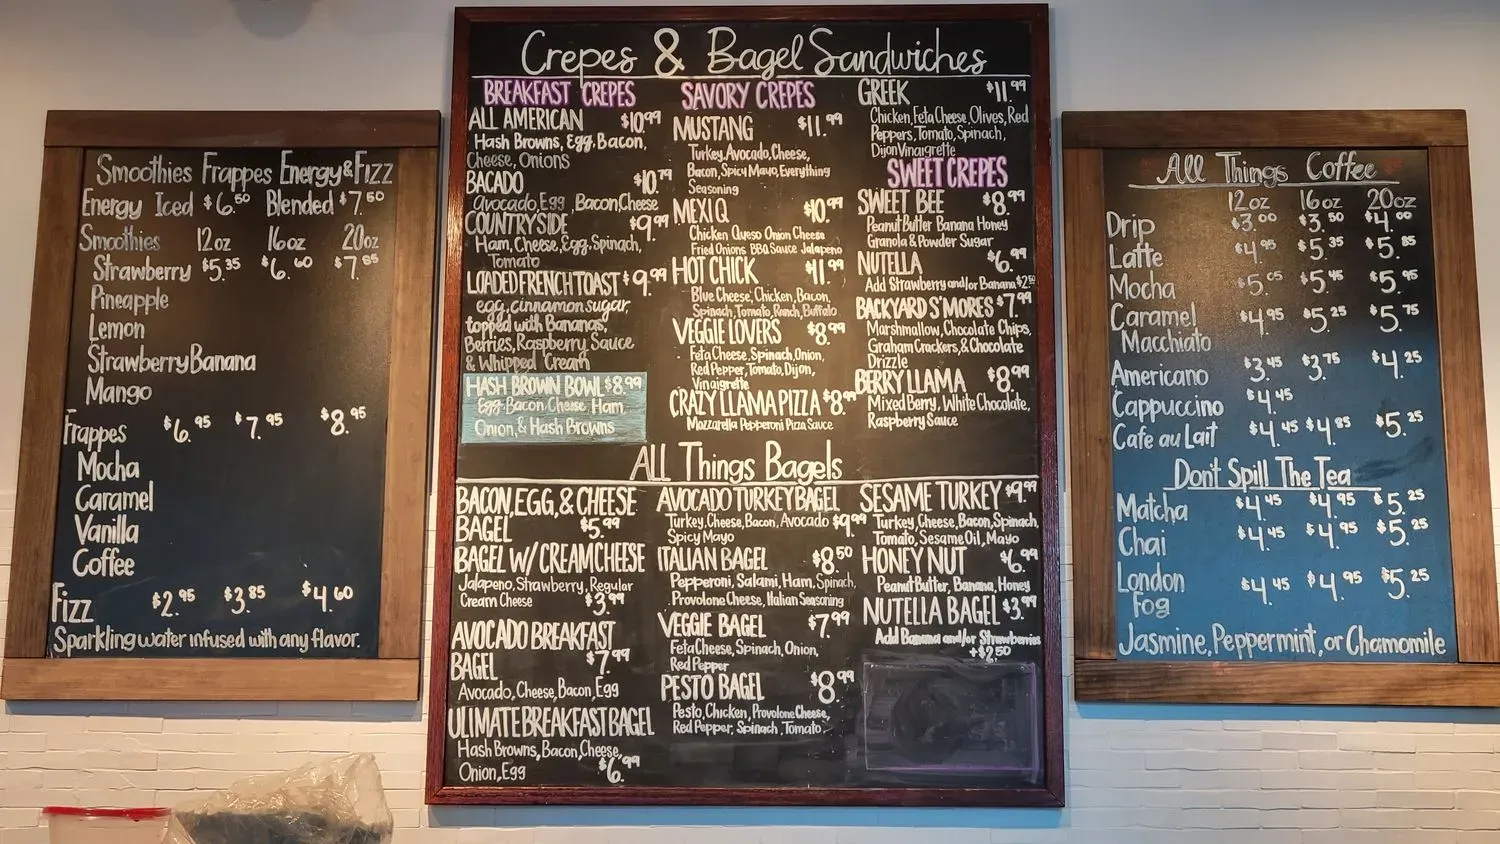 Smoothies Frappes Energy & Fizz
Energy Iced $6.50 Blended $7.50
Smoothies 12oz 16oz 20oz
Strawberry $5.35 $6.60 $7.85
Pineapple
Lemon
Strawberry Banana
Mango
Frappes $6.95 $7.95 $8.95
Mocha
Caramel
Vanilla
Coffee
Fizz $2.95 $3.85 $4.60
Sparkling water infused with any flavor.
Crepes & Bagel Sandwiches
BREAKFAST CREPES
ALL AMERICAN $10.99
Hash Browns, Egg, Bacon,
Cheese, Onions
BACADO $10.79
Avocado, Egg, Bacon, Cheese
COUNTRYSIDE $9.99
Ham, Cheese, Egg, Spinach,
Tomato
LOADED FRENCH TOAST $9.99
egg, cinnamon sugar,
topped with Bananas,
Berries, Raspberry Sauce
& Whipped Cream
HASH BROWN BOWL $8.99
Egg Bacon Cheese Ham,
Onion, & Hash Browns
SAVORY CREPES
MUSTANG $11.99
Turkey, Avocado, Cheese,
Bacon, Spicy Mayo, Everything
Seasoning
MEXI Q $10.99
Chicken Queso Onion Cheese
Fried Onions BBQ Sauce Jalapeno
HOT CHICK $11.99
Blue Cheese, Chicken, Bacon,
Spinach, Tomato, Ranch, Buffalo
VEGGIE LOVERS $8.99
Feta Cheese, Spinach, Onion,
Red Pepper, Tomato, Dijon,
Vinaigrette
CRAZY LLAMA PIZZA $8.99
Mozzarella Pepperoni Pizza Sauce
GREEK $11.99
Chicken, Feta Cheese, Olives, Red
Peppers, Tomato, Spinach,
Dijon Vinaigrette
SWEET CREPES
SWEET BEE $8.99
Peanut Butter Banana Honey
Granola & Powder Sugar
NUTELLA $6.99
Add Strawberry and/or Banana $2.50
BACKYARD S'MORES $7.99
Marshmallow, Chocolate Chips,
Graham Crackers, & Chocolate
Drizzle
BERRY LLAMA $8.99
Mixed Berry, White Chocolate,
Raspberry Sauce
ALL Things Bagels
BACON, EGG, & CHEESE
BAGEL $5.99
BAGEL W/ CREAM CHEESE
Jalapeno, Strawberry, Regular
Cream Cheese $3.99
AVOCADO BREAKFAST
BAGEL $7.99
Avocado, Cheese, Bacon, Egg
ULIMATE BREAKFAST BAGEL
Hash Browns, Bacon, Cheese,
Onion, Egg $6.99
AVOCADO TURKEY BAGEL
Turkey, Cheese, Bacon, Avocado $9.99
Spicy Mayo
ITALIAN BAGEL $8.50
Pepperoni, Salami, Ham, Spinach,
Provolone Cheese, Italian Seasoning
VEGGIE BAGEL $7.99
Feta Cheese, Spinach, Onion,
Red Pepper
PESTO BAGEL $8.99
Pesto, Chicken, Provolone Cheese,
Red Pepper, Spinach, Tomato
SESAME TURKEY $9.99
Turkey, Cheese, Bacon, Spinach,
Tomato, Sesame Oil, Mayo
HONEY NUT $6.99
Peanut Butter, Banana, Honey
NUTELLA BAGEL $3.99
Add Banana and/or Strawberries
+$2.50
All Things Coffee
12oz 16oz 20oz
Drip $3.00 $3.50 $4.00
Latte $4.95 $5.35 $5.85
Mocha $5.05 $5.45 $5.95
Caramel $4.95 $5.25 $5.75
Macchiato
Americano $3.45 $3.75 $4.25
Cappuccino $4.45
Cafe au Lait $4.45 $4.85 $5.25
Dont Spill The Tea
Matcha $4.45 $4.95 $5.25
Chai $4.45 $4.95 $5.25
London $4.45 $4.95 $5.25
Fog
Jasmine, Peppermint, or Chamomile